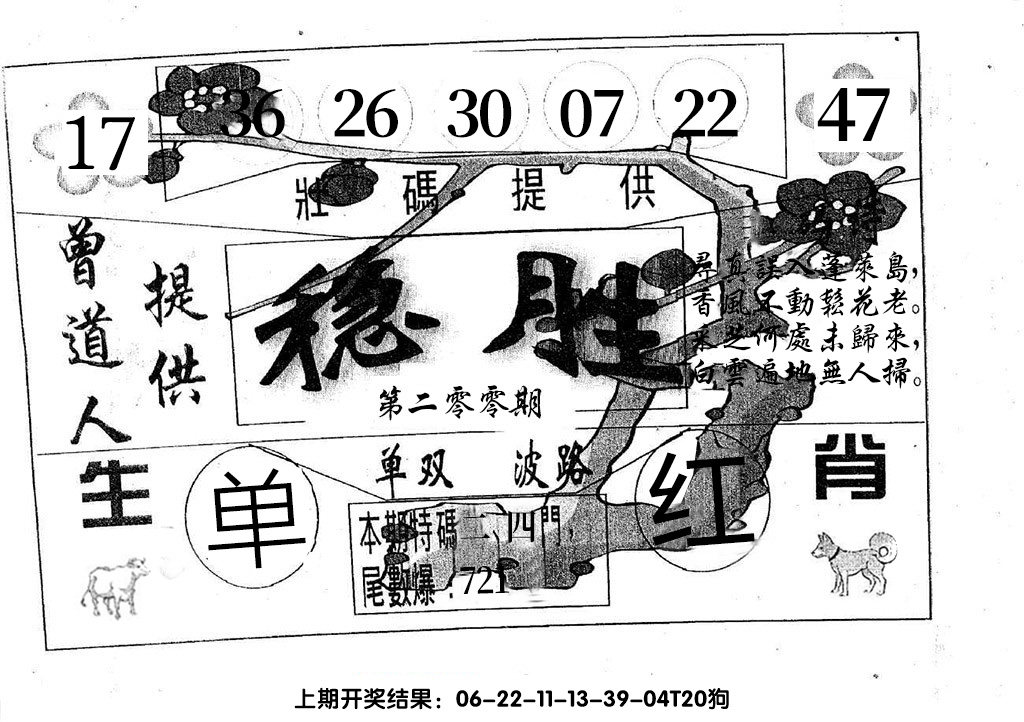 17 36 26 30 07 22 47
壯碼提供
曾道人
提供
特
穏胜
第二零零期
尋真誤入蓬萊島，
香風不動鬆花老。
采芝何處未歸來，
白雲遍地無人掃。
单双 波路
生 肖
单
红
本期特碼二、四門，
尾數爆：721
上期开奖结果：06-22-11-13-39-04T20狗